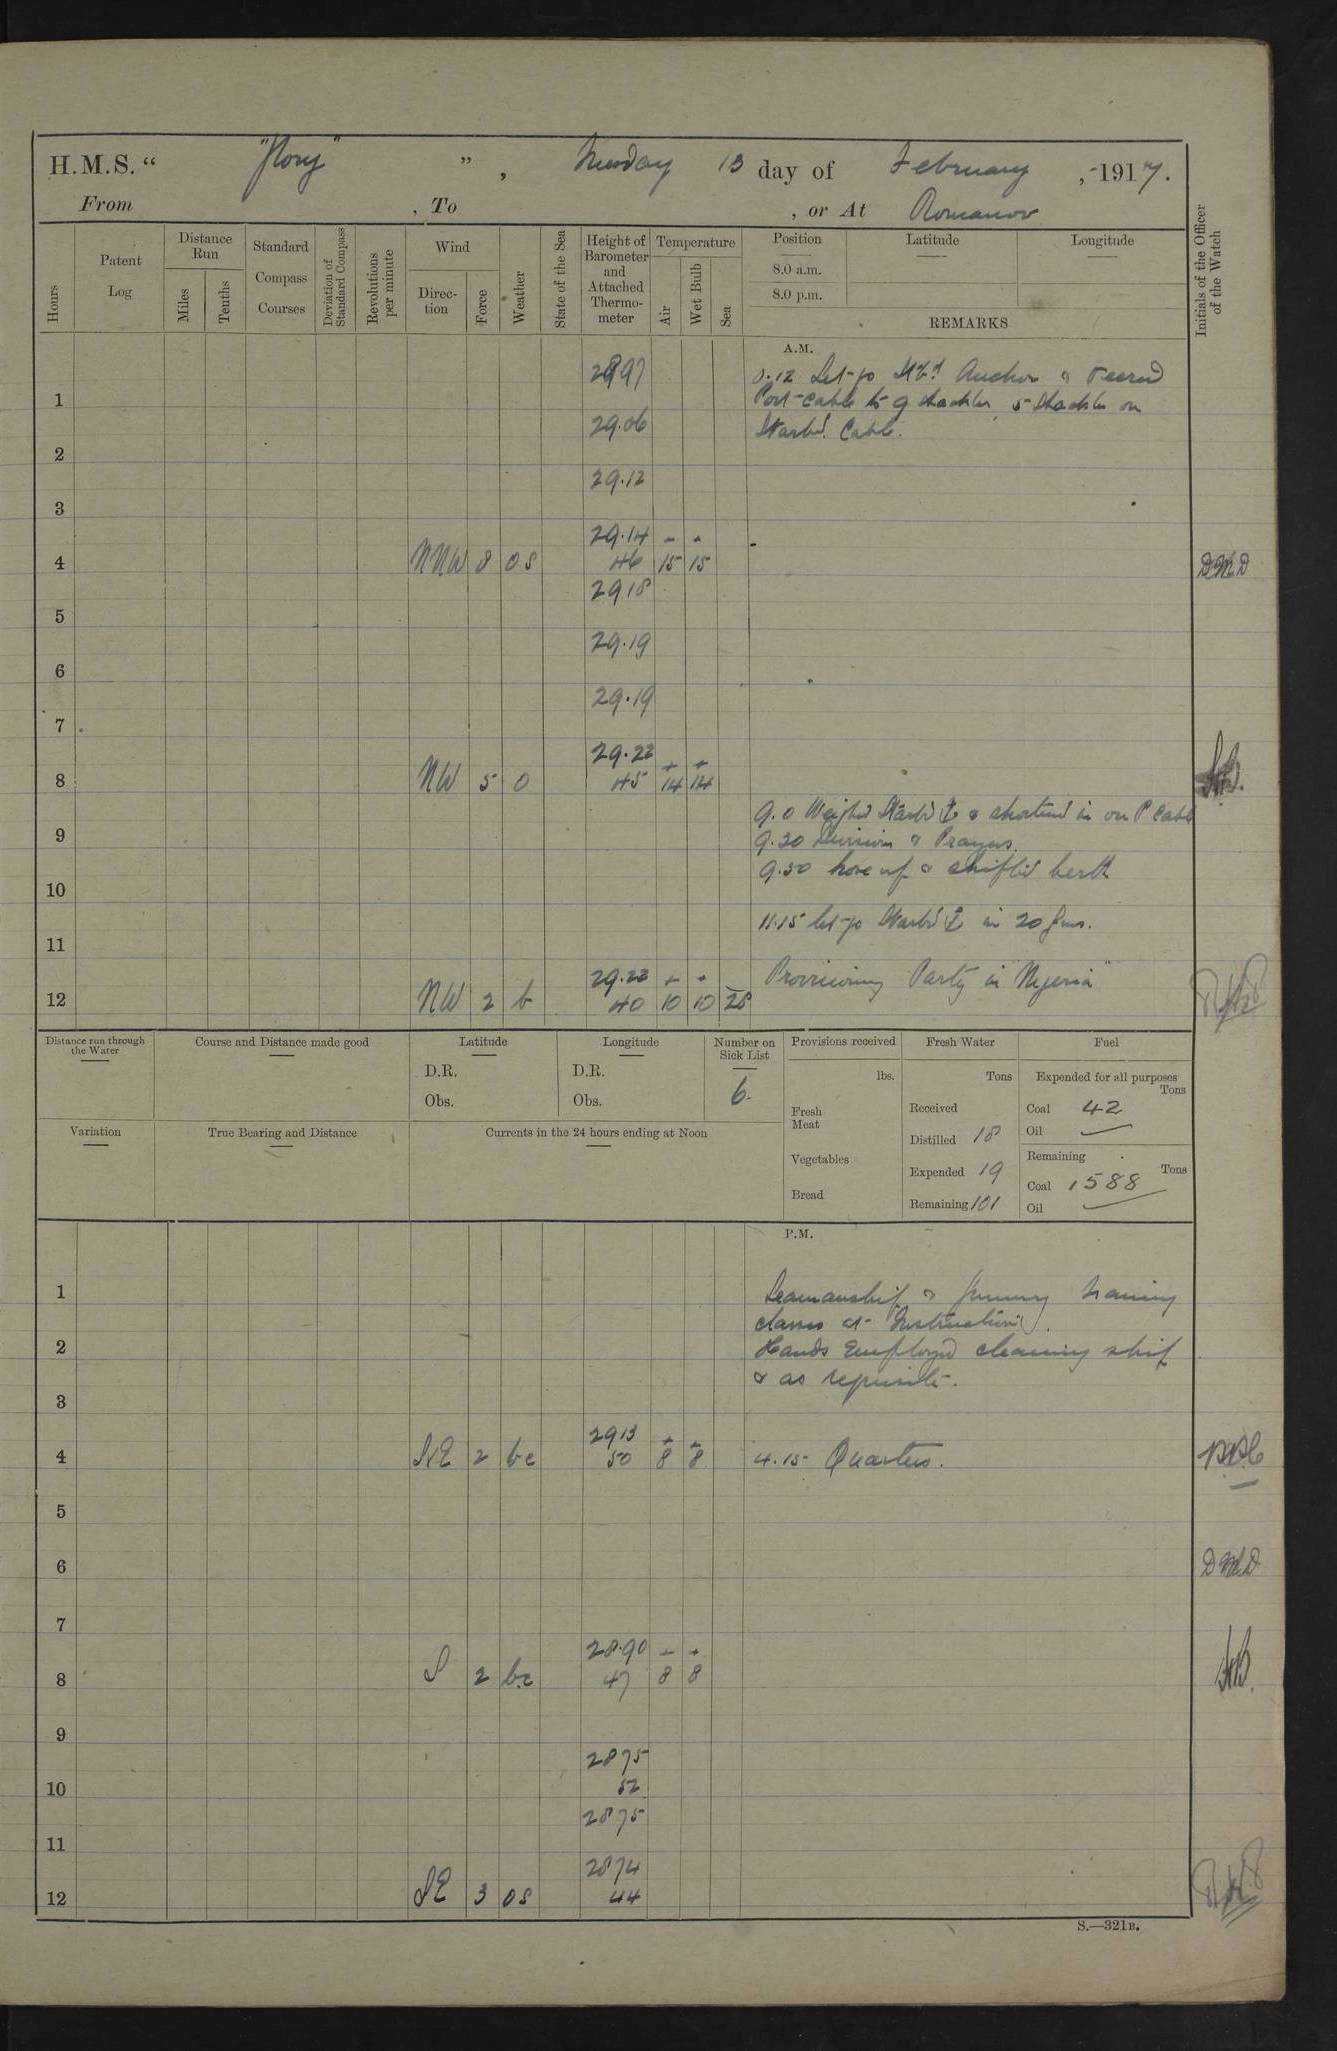 H.M.S. “ "Glory" ” , Tuesday 13 day of February , 1917.
From , To , or At Romanov
Hours
Patent Log
Distance Run
Miles
Tenths
Standard Compass Courses
Deviation of Standard Compass
Revolutions per minute
Wind
Direction
Force
Weather
State of the Sea
Height of Barometer and Attached Thermometer
Temperature
Air
Wet Bulb
Sea
Position
8.0 a.m.
8.0 p.m.
Latitude
Longitude
REMARKS
Initials of the Officer of the Watch
A.M.
28.97 0.12 Let go Stbd Anchor & veered
1 Port cable to 9 shackles, 5 shackles on
29.06 Starbd. Cable.
2
29.12
3
29.14 - -
4 NNW 8 os 46 15 15 DMD
29 18
5
29.19
6
29.19
7
29.22 + +
8 NW 5 o 45 14 14
9.0 Weighed Starbd ⚓ & shortened in on P Cable
9 9.20 Divisions & Prayers.
9.50 hove up & shifted berth
10
11.15 let go Starbd ⚓ in 20 fms.
11
29.22 + - Provisioning Party in "Nigeria"
12 NW 2 b 40 10 10 28
Distance run through the Water
Course and Distance made good
Latitude
D.R.
Obs.
Longitude
D.R.
Obs.
Number on Sick List
6.
Variation
True Bearing and Distance
Currents in the 24 hours ending at Noon
Provisions received
lbs.
Fresh Meat
Vegetables
Bread
Fresh Water
Tons
Received
Distilled 18
Expended 19
Remaining 101
Fuel
Expended for all purposes
Tons
Coal 42
Oil —
Remaining
Tons
Coal 1588
Oil —
P.M.
1 Seamanship & Gunnery training
classes at Instruction.
2 Hands employed cleaning ship
& as requisite.
3
29 13 + -
4 NE 2 bc 50 8 8 4.15 Quarters.
5
6 DMD
7
28.90 - -
8 S 2 bc 47 8 8
9
28 75
10 52
28 75
11
28 74
12 SE 3 os 44
S.—321B.